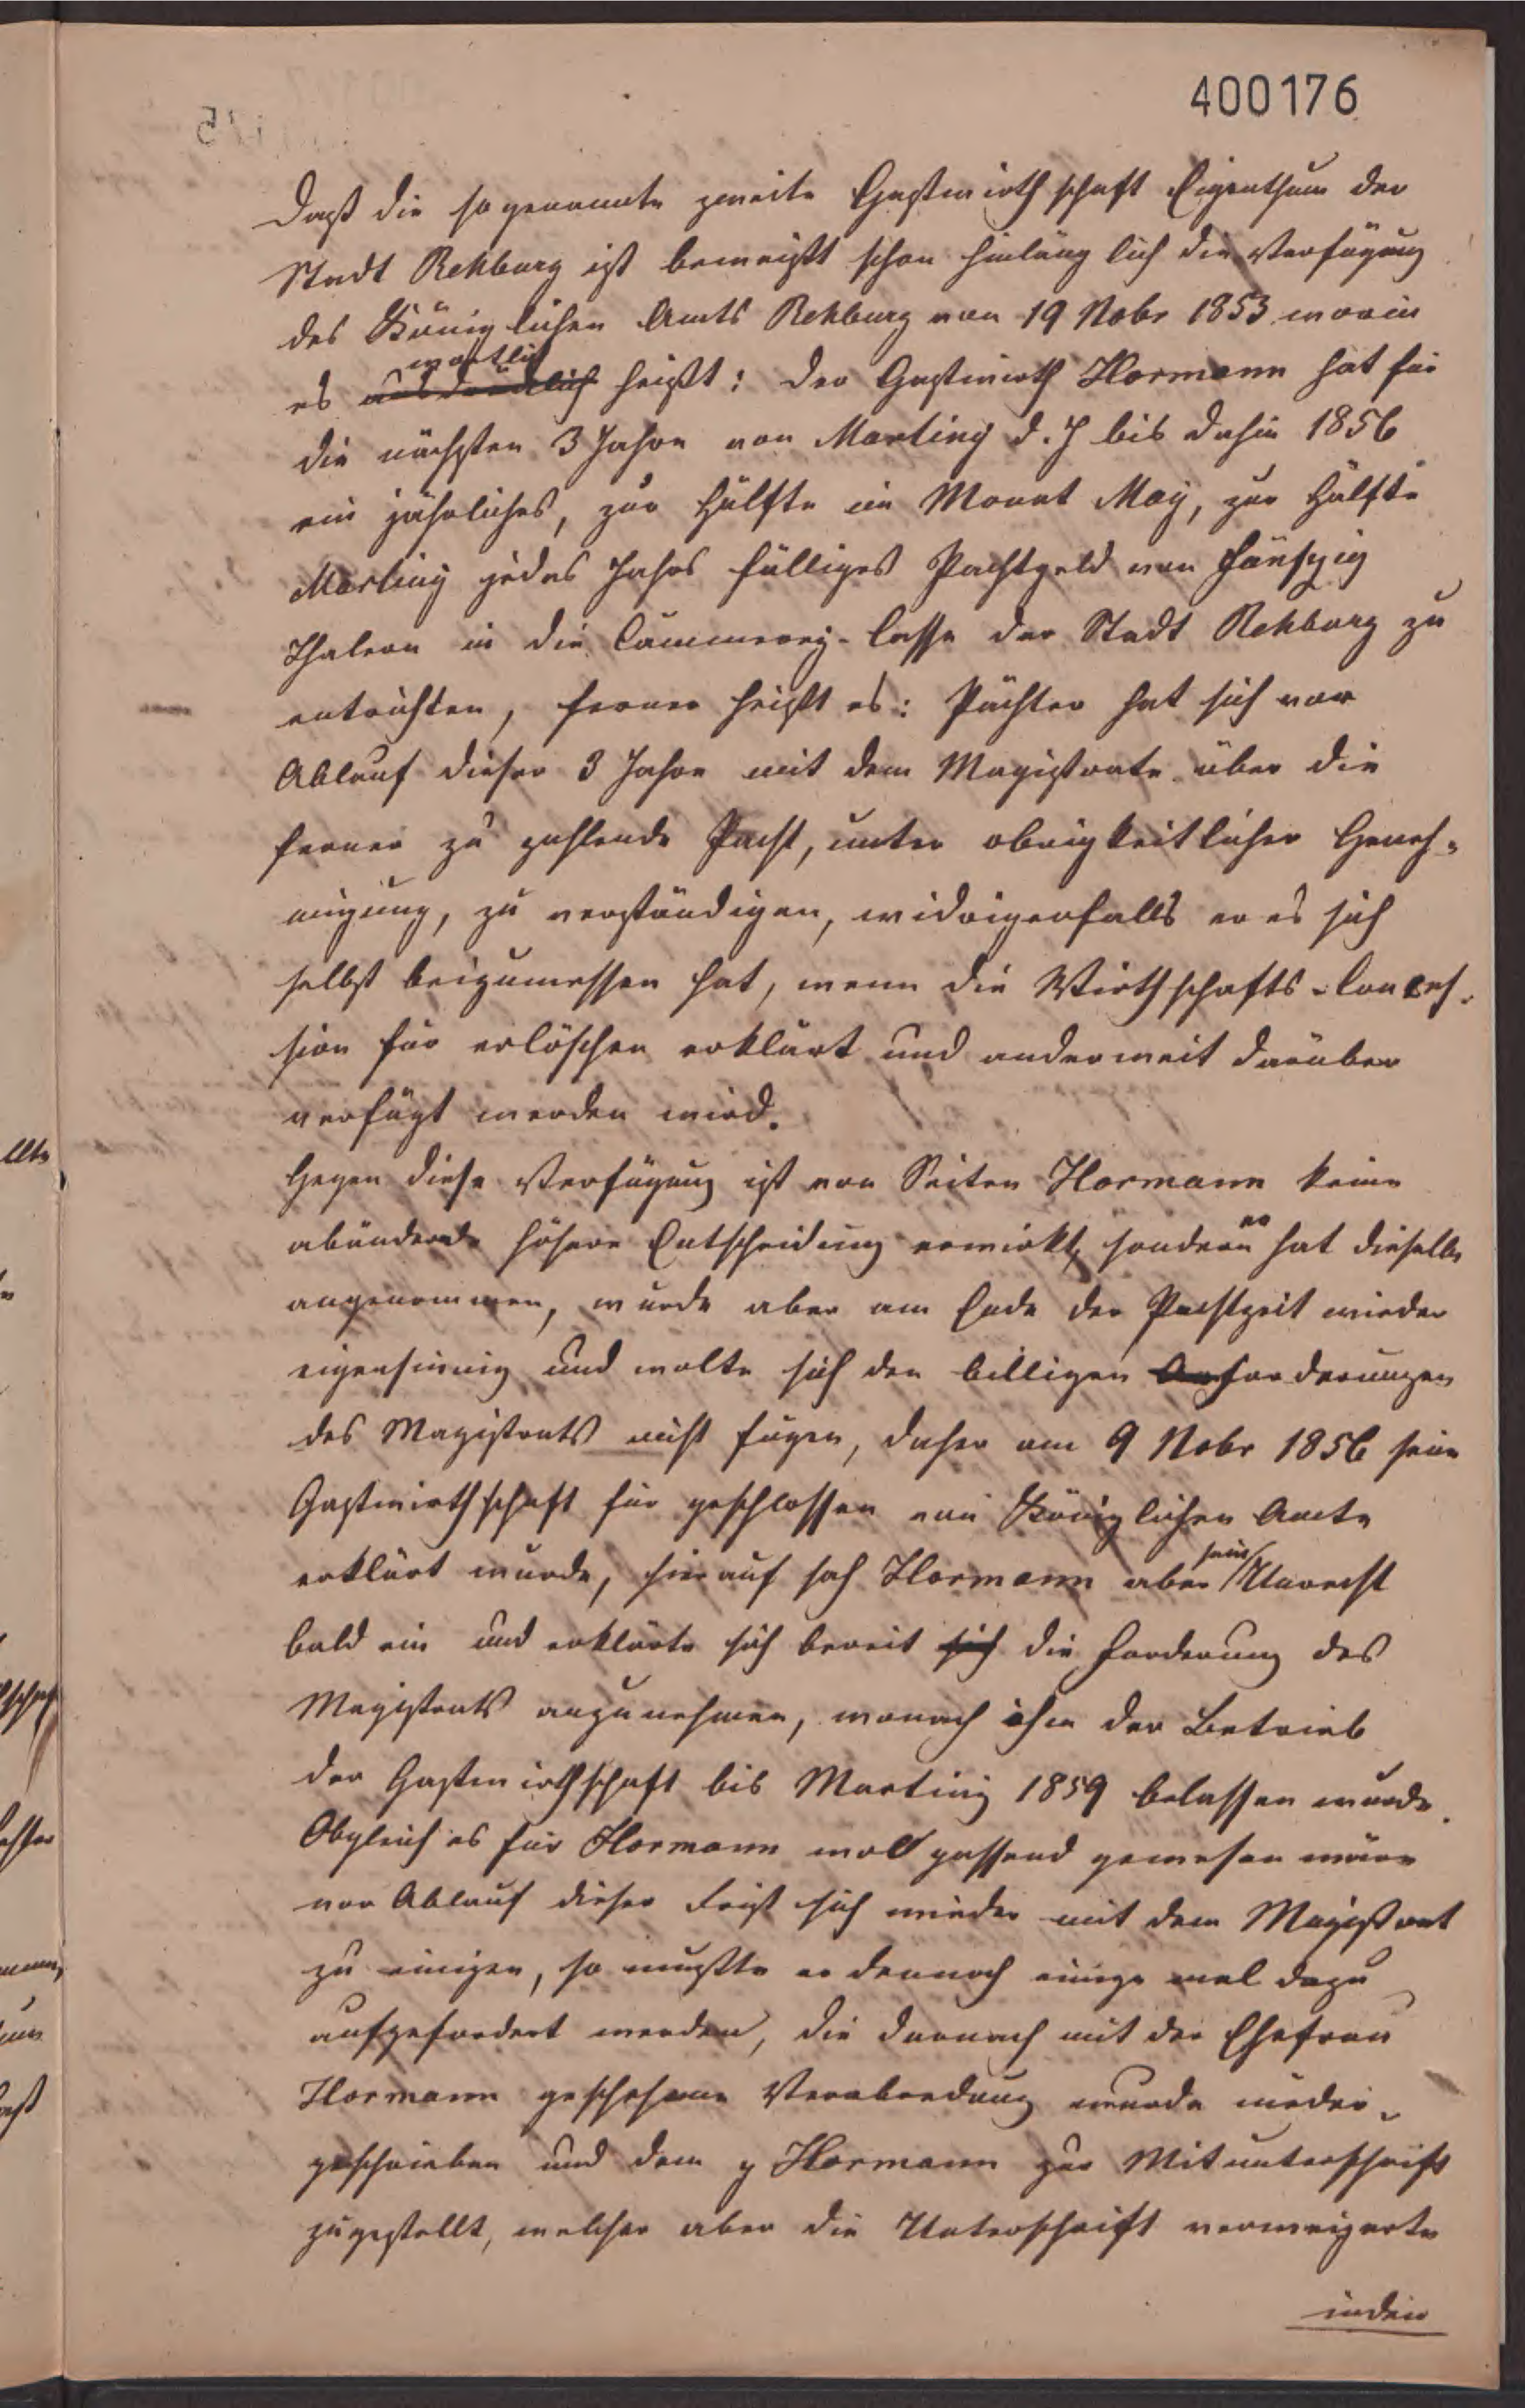 400176
Daß die sogenannte zweite Gastwirthschaft Eigenthum der
Stadt Rehburg ist beweißt schon hinlänglich die Verfügung
des Königlichen Amts Rehburg von 19 Nobr 1853 worin
es wörtlich heißt: der Gastwirth Hormann hat für
die nächsten 3 Jahre von Martiny d. J bis dahin 1856
ein jährliches, zur Hälfte im Monat May, zur Hälfte
Martiny jedes Jahrs fälliges Pachtgeld von fünfzig
Thalern in die Cämmerey-Casse der Stadt Rehburg zu
entrichten, ferner heißt es: Pächter hat sich vor
Ablauf dieser 3 Jahre mit dem Magistrate über die
ferner zu zahlende Pacht, unter obrigkeitlicher Geneh-
migung, zu verständigen, widrigenfalls er es sich
selbst beizumessen hat, wenn die Wirthschafts-Conces-
sion für erlöschen erklärt und anderweit darüber
verfügt werden wird.
Gegen diese Verfügung ist von Seiten Hormann keine
abändernde höhere Entscheidung erwirkt, sondern er hat dieselbe
angenommen, wurde aber am Ende der Pachtzeit wieder
eigensinnig und wolte sich den billigen Forderungen
des Magistrats nicht fügen, daher am 9 Nobr 1856 seine
Gastwirthschaft für geschlossen von Königlichen Amte
erklärt wurde, hierauf sah Hormann aber sein Unrecht
bald ein und erklärte sich bereit die Forderung des
Magistrats anzunehmen, wonach ihm der Betrieb
der Gastwirthschaft bis Martiny 1859 belassen wurde.
Obgleich es für Hormann woll passend gewesen wäre
vor Ablauf dieser Frist sich wieder mit dem Magistrat
zu einigen, so mußte er dennoch einige mal dazu
aufgefordert werden, die darnach mit der Ehefrau
Hormann geschehene Verabredung wurde nieder-
geschrieben und dem p Hormann zur Mitunterschrift
zugestellt, welcher aber die Unterschrift verweigerte
indem